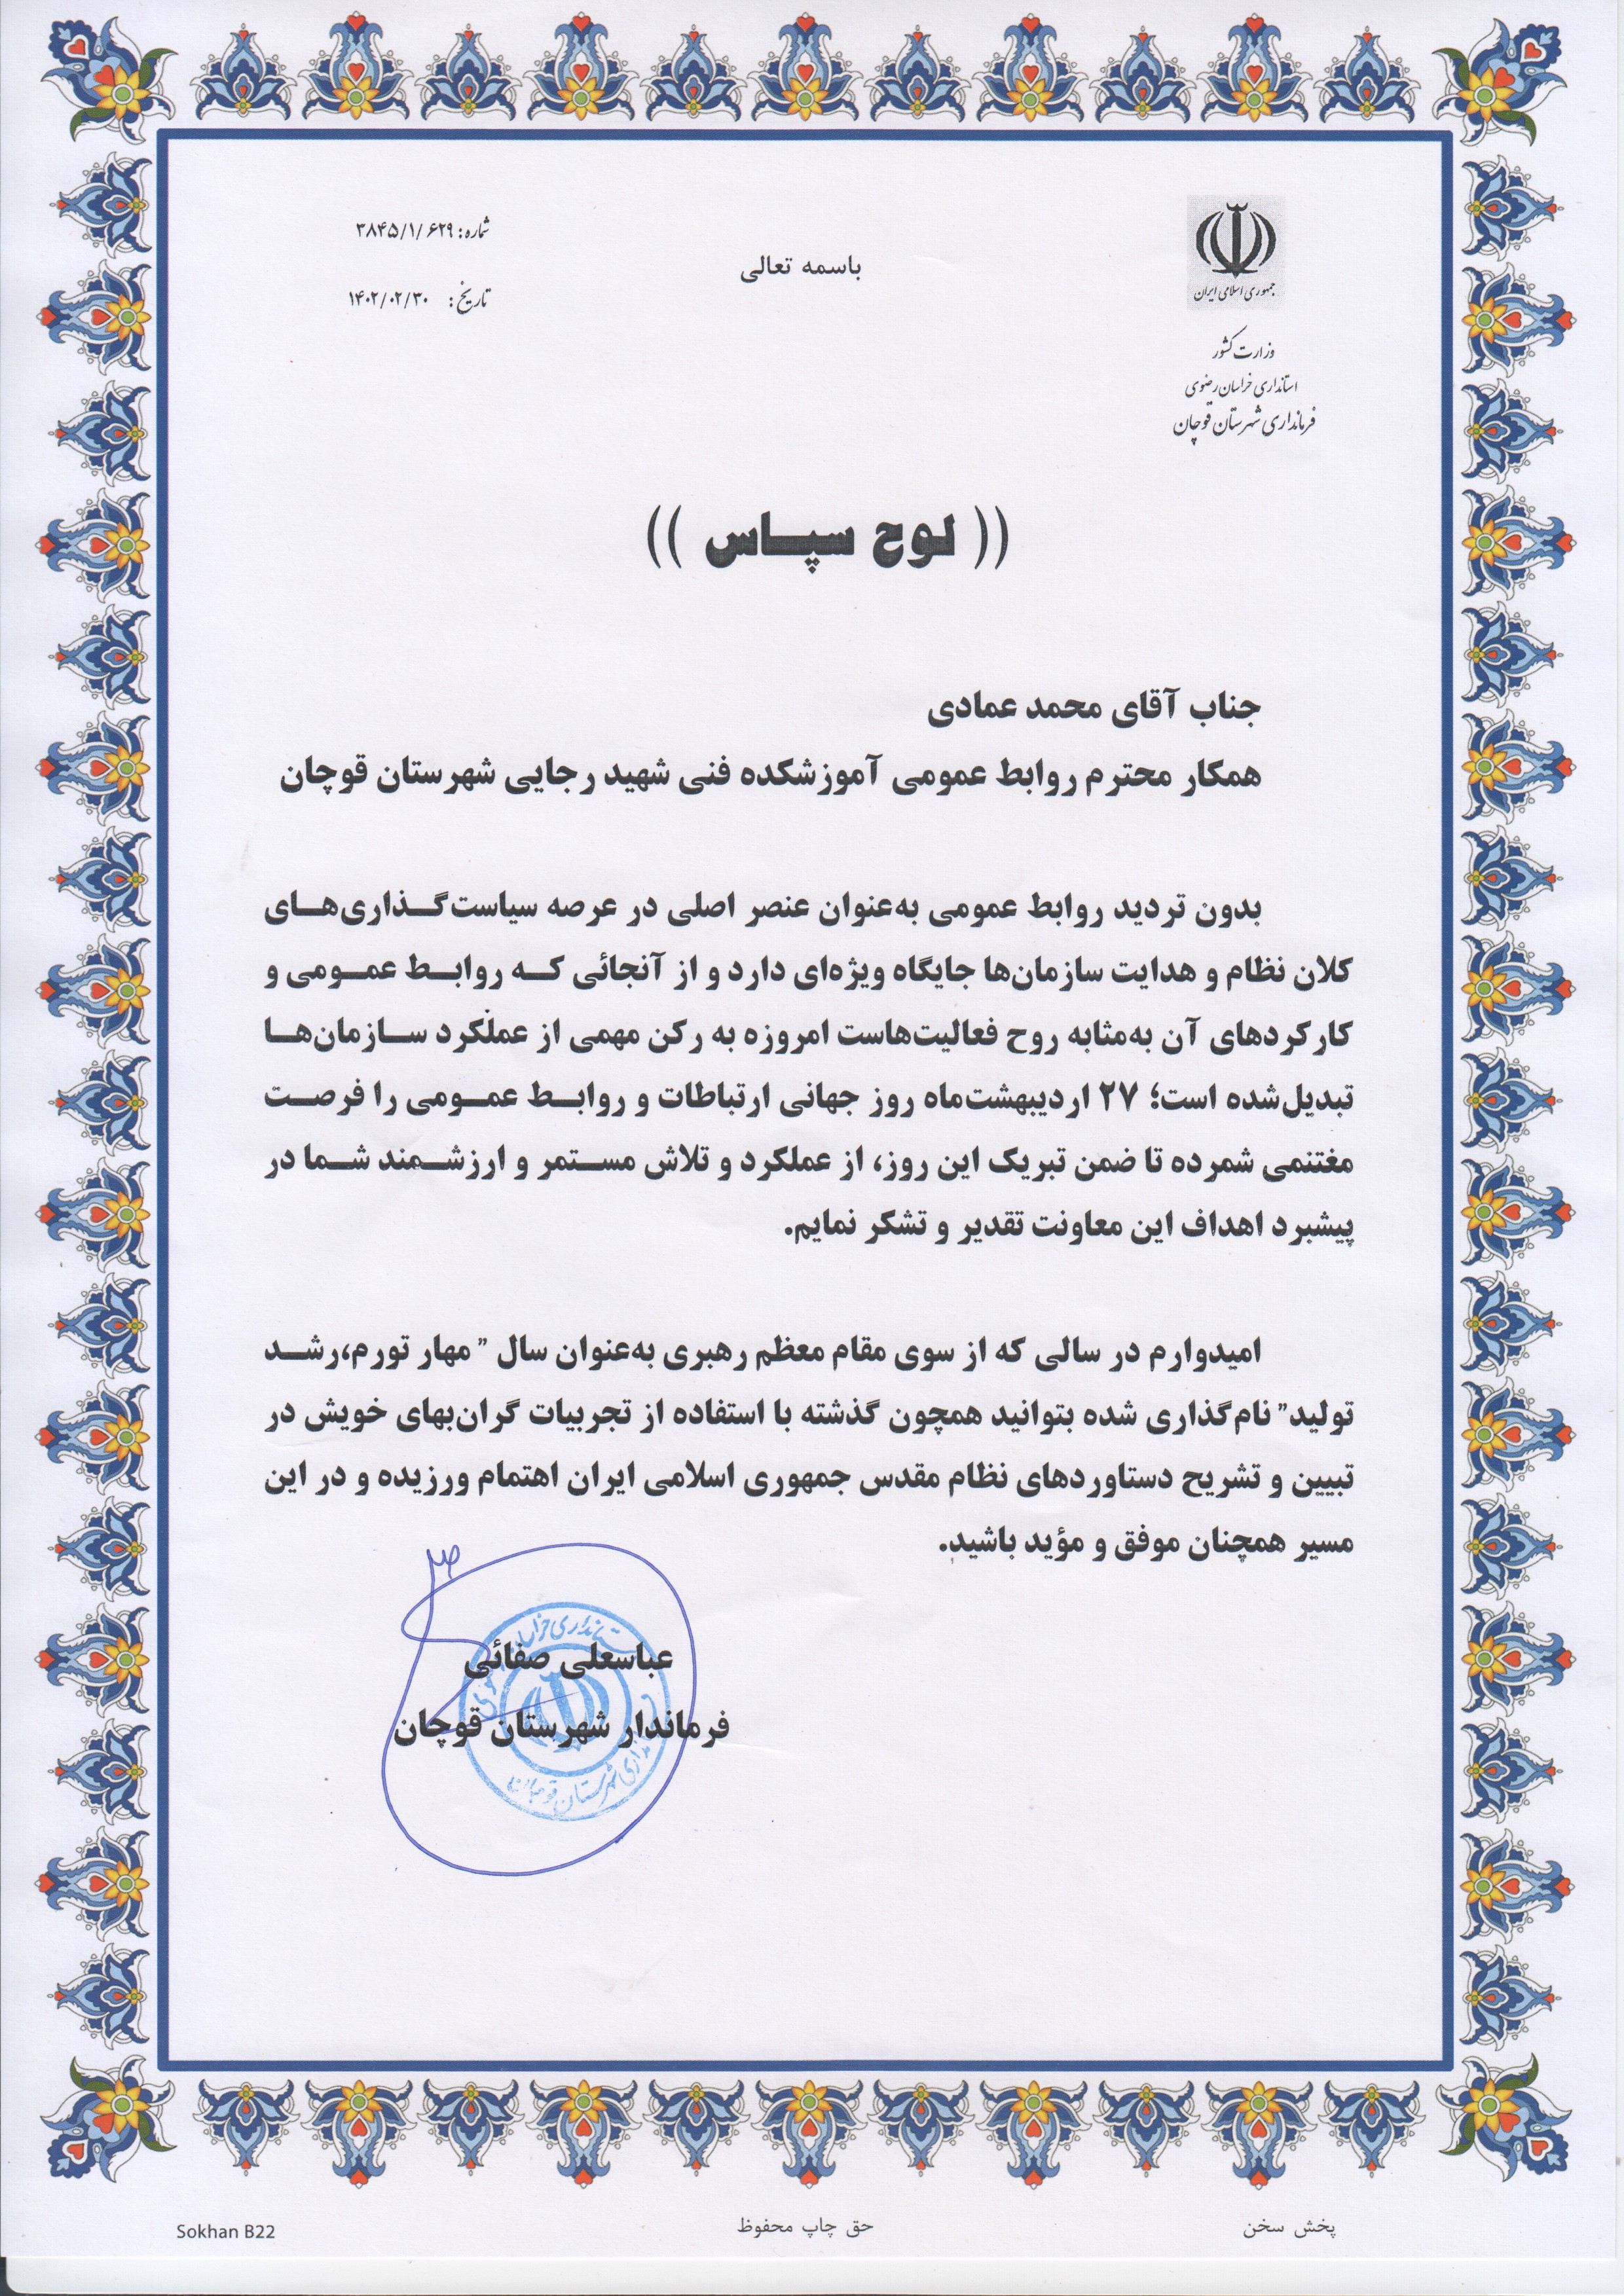 جمهوری اسلامی ایران
وزارت کشور
استانداری خراسان رضوی
فرمانداری شهرستان قوچان
باسمه تعالی
شماره: ۳۸۴۵/۱/۶۲۹
تاریخ: ۱۴۰۲/۰۲/۳۰
(( لوح سپاس ))
جناب آقای محمد عمادی
همکار محترم روابط عمومی آموزشکده فنی شهید رجایی شهرستان قوچان
بدون تردید روابط عمومی به‌عنوان عنصر اصلی در عرصه سیاست‌گذاری‌های
کلان نظام و هدایت سازمان‌ها جایگاه ویژه‌ای دارد و از آنجائی که روابط عمومی و
کارکردهای آن به‌مثابه روح فعالیت‌هاست امروزه به رکن مهمی از عملکرد سازمان‌ها
تبدیل‌شده است؛ ۲۷ اردیبهشت‌ماه روز جهانی ارتباطات و روابط عمومی را فرصت
مغتنمی شمرده تا ضمن تبریک این روز، از عملکرد و تلاش مستمر و ارزشمند شما در
پیشبرد اهداف این معاونت تقدیر و تشکر نمایم.
امیدوارم در سالی که از سوی مقام معظم رهبری به‌عنوان سال ” مهار تورم،رشد
تولید” نام‌گذاری شده بتوانید همچون گذشته با استفاده از تجربیات گران‌بهای خویش در
تبیین و تشریح دستاوردهای نظام مقدس جمهوری اسلامی ایران اهتمام ورزیده و در این
مسیر همچنان موفق و مؤید باشید.
عباسعلی صفائی
فرماندار شهرستان قوچان
پخش سخن
حق چاپ محفوظ
Sokhan B22